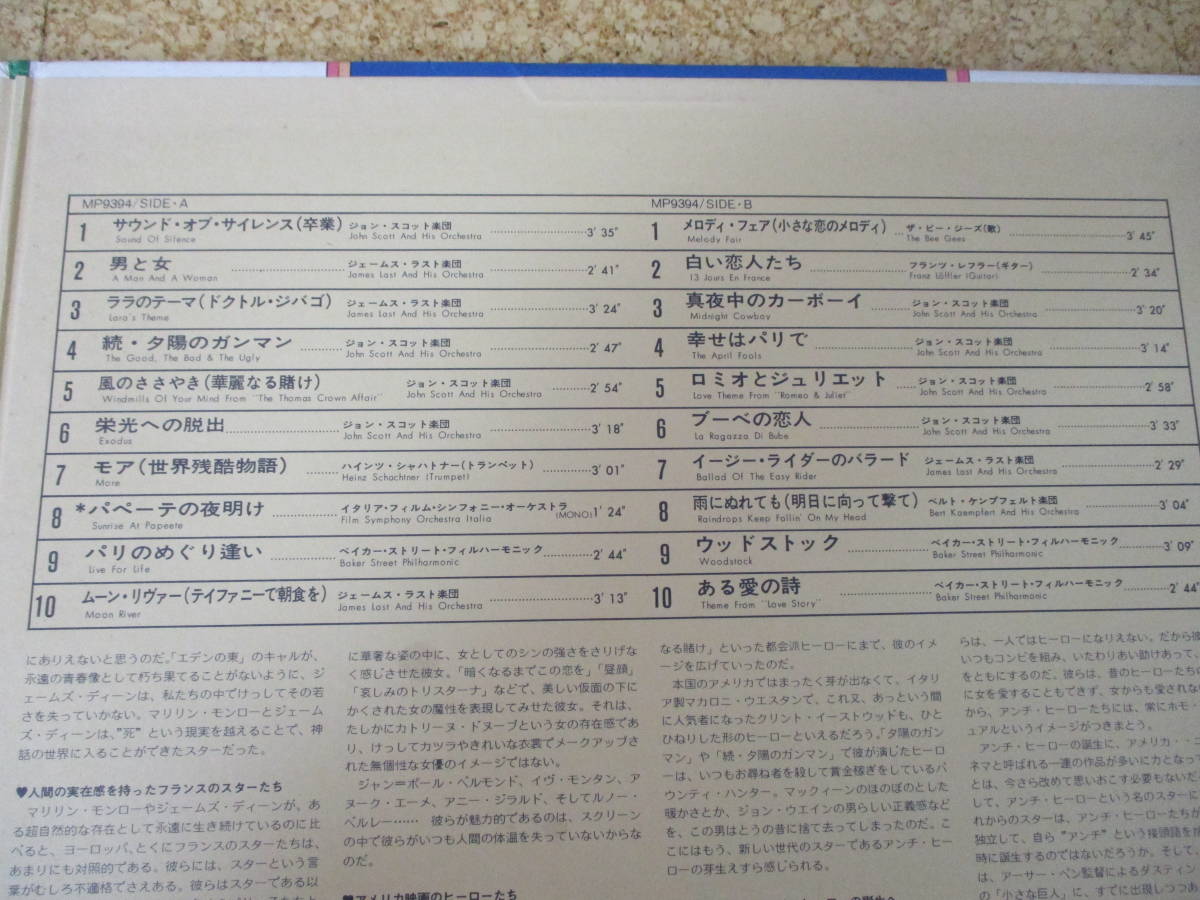 MP9394/SIDE・A
1 サウンド・オブ・サイレンス(卒業) ジョン・スコット楽団 3′35″
Sound Of Silence John Scott And His Orchestra
2 男と女 ジェームス・ラスト楽団 2′41″
A Man And A Woman James Last And His Orchestra
3 ララのテーマ(ドクトル・ジバゴ) ジェームス・ラスト楽団 3′24″
Lara's Theme James Last And His Orchestra
4 続・夕陽のガンマン ジョン・スコット楽団 2′47″
The Good, The Bad & The Ugly John Scott And His Orchestra
5 風のささやき(華麗なる賭け) ジョン・スコット楽団 2′54″
Windmills Of Your Mind From "The Thomas Crown Affair" John Scott And His Orchestra
6 栄光への脱出 ジョン・スコット楽団 3′18″
Exodus John Scott And His Orchestra
7 モア(世界残酷物語) ハインツ・シャハトナー(トランペット) 3′01″
More Heinz Schachtner (Trumpet)
8 *パペーテの夜明け イタリア・フィルム・シンフォニー・オーケストラ (MONO) 1′24″
Sunrise At Papeete Film Symphony Orchestra Italia
9 パリのめぐり逢い ベイカー・ストリート・フィルハーモニック 2′44″
Live For Life Baker Street Philharmonic
10 ムーン・リヴァー(テイファニーで朝食を) ジェームス・ラスト楽団 3′13″
Moon River James Last And His Orchestra
MP9394/SIDE・B
1 メロディ・フェア(小さな恋のメロディ) ザ・ビー・ジーズ(歌) 3′45″
Melody Fair The Bee Gees
2 白い恋人たち フランツ・レフラー(ギター) 2′34″
13 Jours En France Franz Löffler (Guitar)
3 真夜中のカーボーイ ジョン・スコット楽団 3′20″
Midnight Cowboy John Scott And His Orchestra
4 幸せはパリで ジョン・スコット楽団 3′14″
The April Fools John Scott And His Orchestra
5 ロミオとジュリエット ジョン・スコット楽団 2′58″
Love Theme From "Romeo & Juliet" John Scott And His Orchestra
6 ブーベの恋人 ジョン・スコット楽団 3′33″
La Ragazza Di Bube John Scott And His Orchestra
7 イージー・ライダーのバラード ジェームス・ラスト楽団 2′29″
Ballad Of The Easy Rider James Last And His Orchestra
8 雨にぬれても(明日に向って撃て) ベルト・ケンプフェルト楽団 3′04″
Raindrops Keep Fallin' On My Head Bert Kaempfert And His Orchestra
9 ウッドストック ベイカー・ストリート・フィルハーモニック 3′09″
Woodstock Baker Street Philharmonic
10 ある愛の詩 ベイカー・ストリート・フィルハーモニック 2′44″
Theme From "Love Story" Baker Street Philharmonic
にありえないと思うのだ。「エデンの東」のキャルが、
永遠の青春像として朽ち果てることがないように、ジ
ェームズ・ディーンは、私たちの中でけっしてその若
さを失っていかない。マリリン・モンローとジェーム
ズ・ディーンは、"死"という現実を越えることで、神
話の世界に入ることができたスターだった。
♥人間の実在感を持ったフランスのスターたち
マリリン・モンローやジェームズ・ディーンが、あ
る超自然的な存在として永遠に生き続けているのに比
べると、ヨーロッパ、とくにフランスのスターたちは、
あまりにも対照的である。彼らには、スターという言
葉がむしろ不適格でさえある。彼らはスターである以
に華奢な姿の中に、女としてのシンの強さをさりげな
く感じさせた彼女。「暗くなるまでこの恋を」「昼顔」
「哀しみのトリスターナ」などで、美しい仮面の下に
かくされた女の魔性を表現してみせた彼女。それは、
たしかにカトリーヌ・ドヌーブという女の存在感であ
り、けっしてカツラやきれいな衣裳でメークアップさ
れた無個性な女優のイメージではない。
ジャン＝ポール・ベルモンド、イヴ・モンタン、ア
ヌーク・エーメ、アニー・ジラルド、そしてルノー・
ベルレー…… 彼らが魅力的であるのは、スクリーン
の中で彼らがいつも人間の体温を失っていないからな
のだ。
♥アメリカ映画のヒーローたち
なる賭け」といった都会派ヒーローにまで、彼のイメ
ージを広げていったのだ。
本国のアメリカではまったく芽が出なくて、イタリ
ア製マカロニ・ウエスタンで、これ又、あっという間
に人気者になったクリント・イーストウッドも、ひと
ひねりした形のヒーローといえるだろう。「夕陽のガン
マン」や「続・夕陽のガンマン」で彼が演じたヒーロ
ーは、いつもお尋ね者を殺して賞金稼ぎをしているバ
ウンティ・ハンター。マックィーンのほのぼのとした
暖かさとか、ジョン・ウエインの男らしい正義感など
を、この男はとうの昔に捨て去ってしまったのだ。こ
こにはもう、新しい世代のスターであるアンチ・ヒー
ローの芽生えすら感じられる。
らは、一人ではヒーローになりえない。だから彼
いつもコンビを組み、いたわりあい助けあって、
をともにするのだ。彼らは、昔のヒーローたちに
に女を愛することもできず、女からも愛されな
から、アンチ・ヒーローたちには、常にホモ・
ュアルというイメージがつきまとう。
アンチ・ヒーローの誕生に、アメリカ・・ニ
ネマと呼ばれる一連の作品が多いに力となって
とは、今さら改めて思いおこす必要もないだ
して、アンチ・ヒーローという名のスターに
れからのスターは、アンチ・ヒーローたちが
独立して、自ら"アンチ"という接頭語を
時に誕生するのではないだろうか。そして、
は、アーサー・ペン監督によるダスティン
の「小さな巨人」に、すでに出現しつつあ